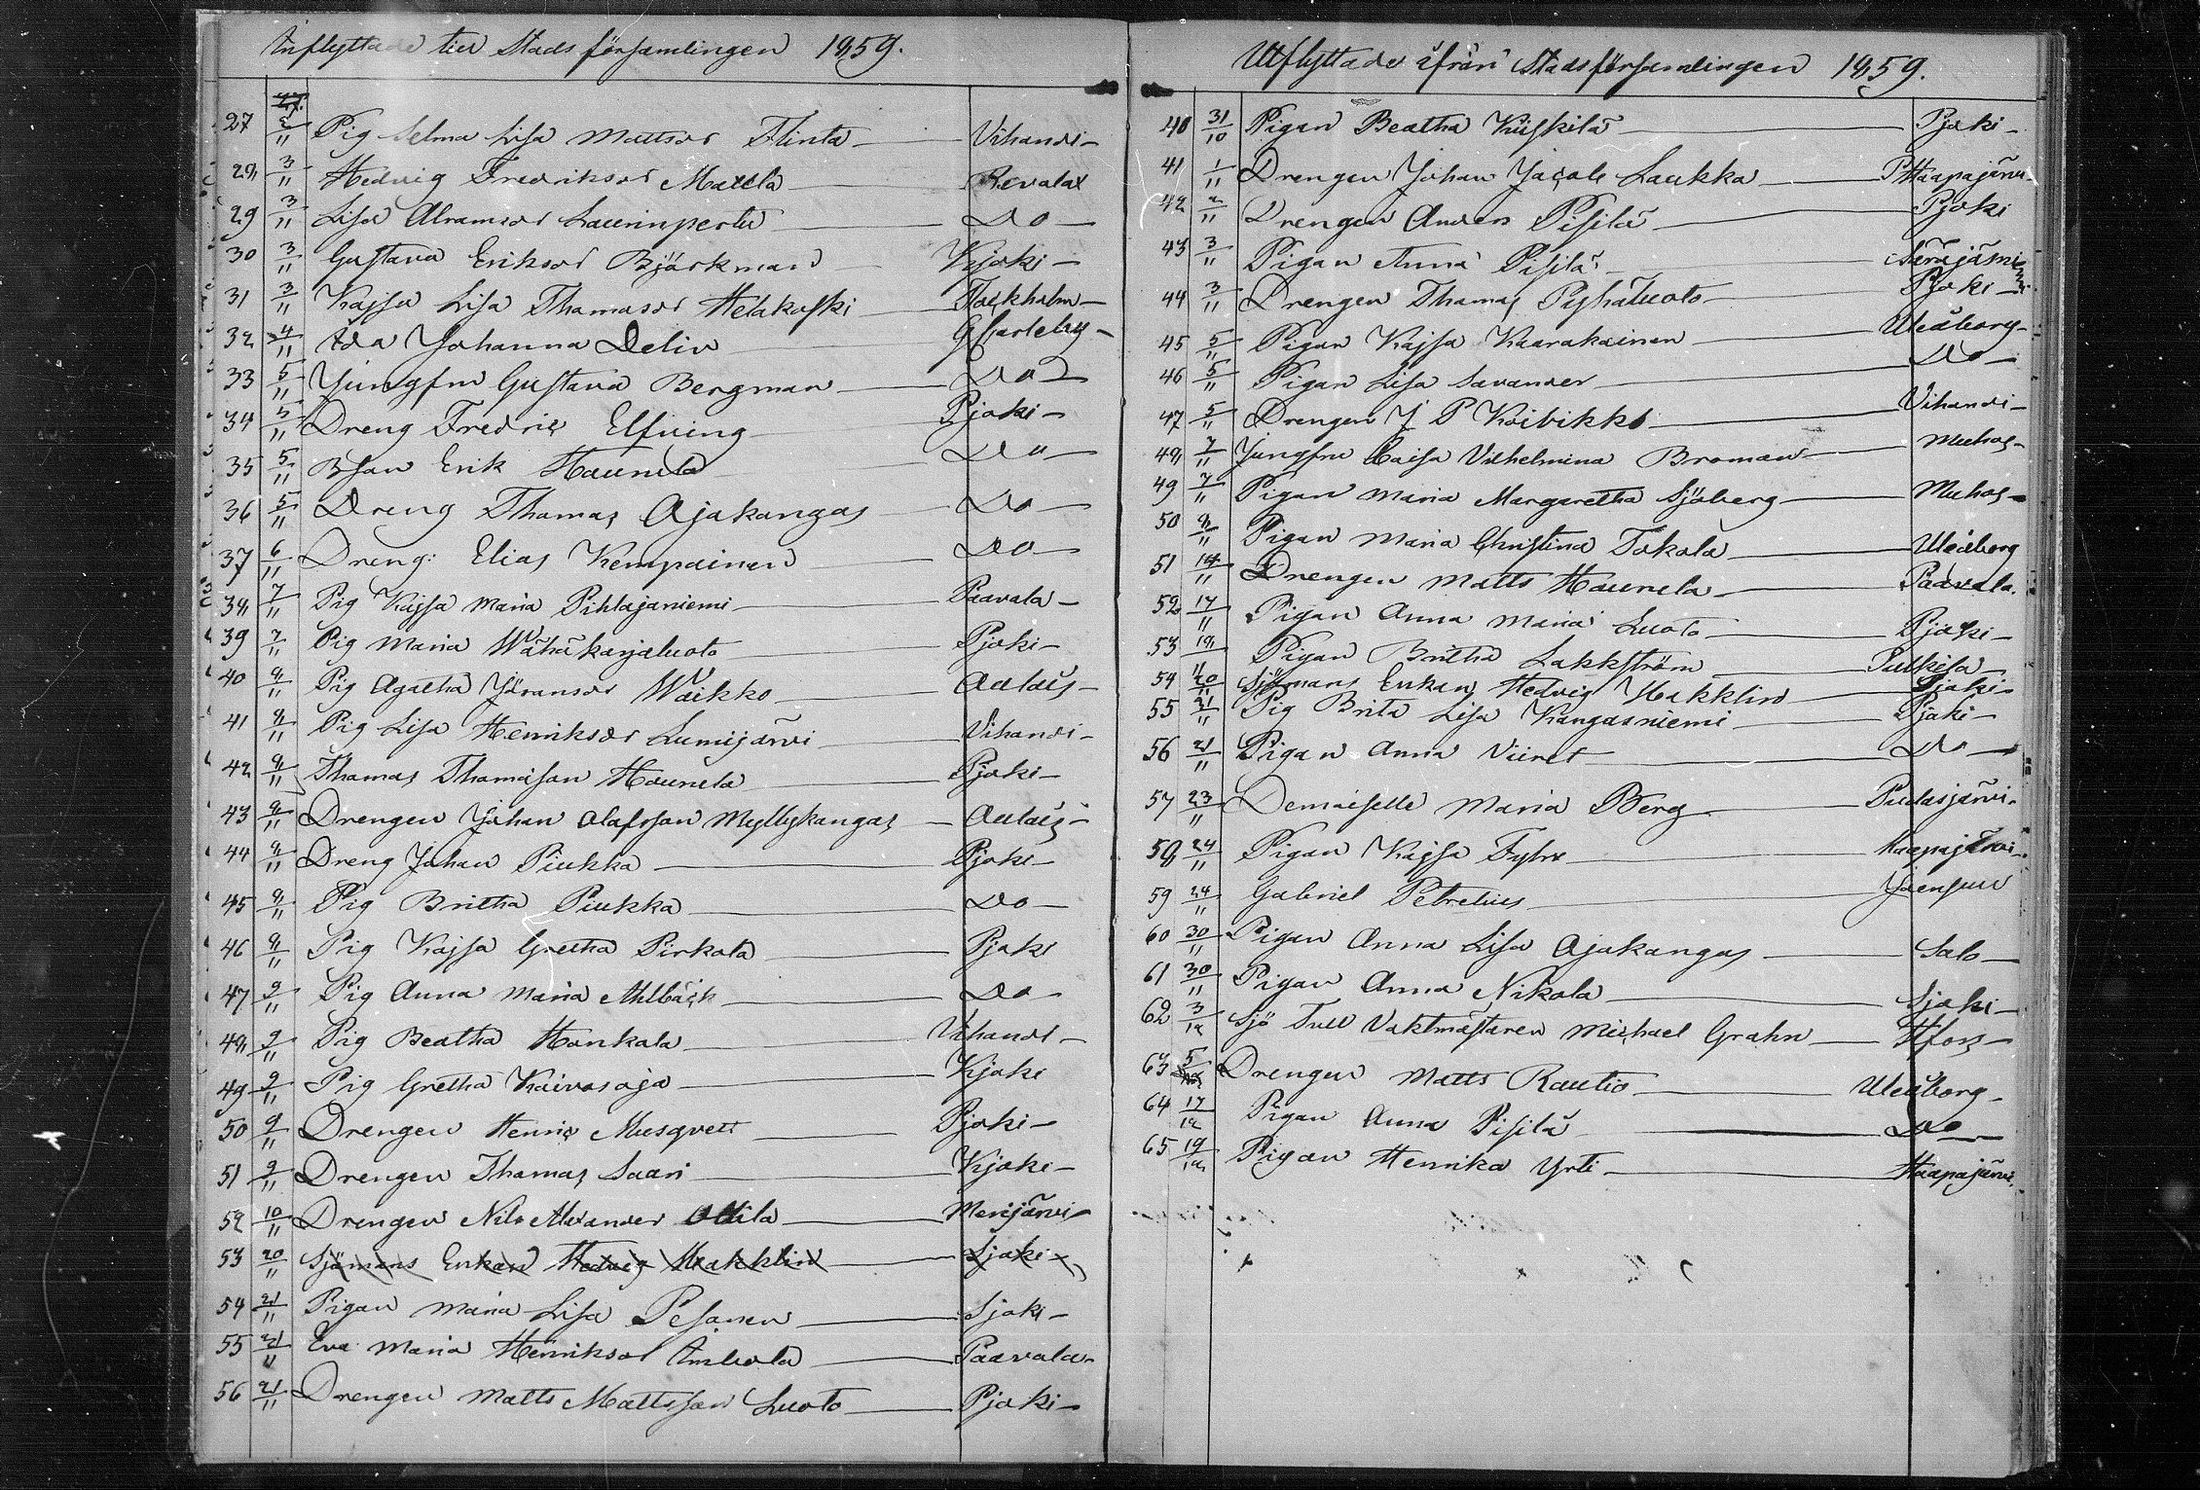 Inflyttade till Stads församlingen 1859.
27 2/11 Pig Selma Lisa Mattsdr Flinta — Vihandi —
28 3/11 Hedvig Fredriksdr Mattla — Revolax
29 3/11 Lisa Abramsdr Laurinperttu — Do —
30 3/11 Gustava Eriksdr Björkman — Kjoki —
31 3/11 Kajsa Lisa Thomasdr Helakoski —
32 4/11 Ida Johanna Delin — Gkarleby —
33 5/11 Jungfru Gustava Bergman — Do —
34 5/11 Dreng Fredric Elfving — Pjoki —
35 5/11 Bson Erik Haunela — Do —
36 5/11 Dreng Thomas Ojakangas — Do —
37 6/11 Dreng: Elias Kempainen — Do —
38 7/11 Pig Kajsa Maria Pihlajaniemi — Paavola —
39 7/11 Pig Maria Wähäkarjaluoto — Pjoki —
40 8/11 Pig Agatha Jöransdr Waikko — Oulais —
41 8/11 Pig Lisa Henriksdr Lumijärvi — Vihandi —
42 8/11 Thomas Thomasson Haunela — Pjoki —
43 8/11 Drengen Johan Olafsson Myllykangas — Oulais —
44 8/11 Dreng Johan Piukka — Pjoki —
45 8/11 Pig Britha Piukka — Do —
46 8/11 Pig Kajsa Gretha Pirkola — Pjoki
47 9/11 Pig Anna Maria Ahlbäck — Do —
48 9/11 Pig Beatha Honkala — Vihandi —
49 9/11 Pig Gretha Kaivosoja — Kjoki
50 9/11 Drengen Henric Musqvett — Pjoki —
51 9/11 Drengen Thomas Saari — Kjoki —
52 10/11 Drengen Nils Alexander Ollila — Merijärvi —
53 20/11 Sjömans Enkan Hedvig Makklin — Sjoki —
54 21/11 Pigan Maria Lisa Pesonen — Sjoki —
55 21/11 Eva Maria Henriksdr — Paavola —
56 21/11 Drengen Matts Mattsson Luoto — Pjoki —
Utflyttade ifrån Stadsförsamlingen 1859.
40 31/10 Pigan Beatha Kiiskilä — Pjoki —
41 1/11 Drengen Johan Jacob Laukka — Haapajärvi
42 2/11 Drengen Anders Pisilä — Pjoki
43 3/11 Pigan Anna Pisilä — Säräjärvi
44 3/11 Drengen Thomas Pyhäluoto — Pjoki —
45 5/11 Pigan Kajsa Kaarakainen — Uleåborg —
46 5/11 Pigan Lisa Savander — Do —
47 5/11 Drengen J P Koivikko — Vihandi —
48 7/11 Jungfru Caisa Vilhelmina Broman — Muhos —
49 7/11 Pigan Maria Margaretha Sjöberg — Muhos —
50 8/11 Pigan Maria Christina Tokola — Uleåborg
51 14/11 Drengen Matts Haunela — Paavola.
52 17/11 Pigan Anna Maria Luoto — Pjoki —
53 18 Pigan Britha Lakkström — Pulkila —
54 20/11 Sjömans Enkan Hedvig Makklin — Sjoki —
55 21/11 Pig Brita Lisa Kangasniemi — Pjoki —
56 21/11 Pigan Anna Viiret — Do —
57 23/11 Demoiselle Maria Berg — Pudasjärvi.
58 24/11 Pigan Kajsa — Haapajärvi.
59 24/11 Gabriel Petrelius — Joensuu
60 30/11 Pigan Anna Lisa Ojakangas — Salo —
61 30/11 Pigan Anna Nikola — Sjoki —
62 3/12 Sjö Tull Vaktmästaren Michael Grahn — Hfors —
63 5/12 Drengen Matts Rautio — Uleåborg —
64 17/12 Pigan Anna Pisilä — Do —
65 19/12 Pigan Henrika Yrti — Haapajärvi.